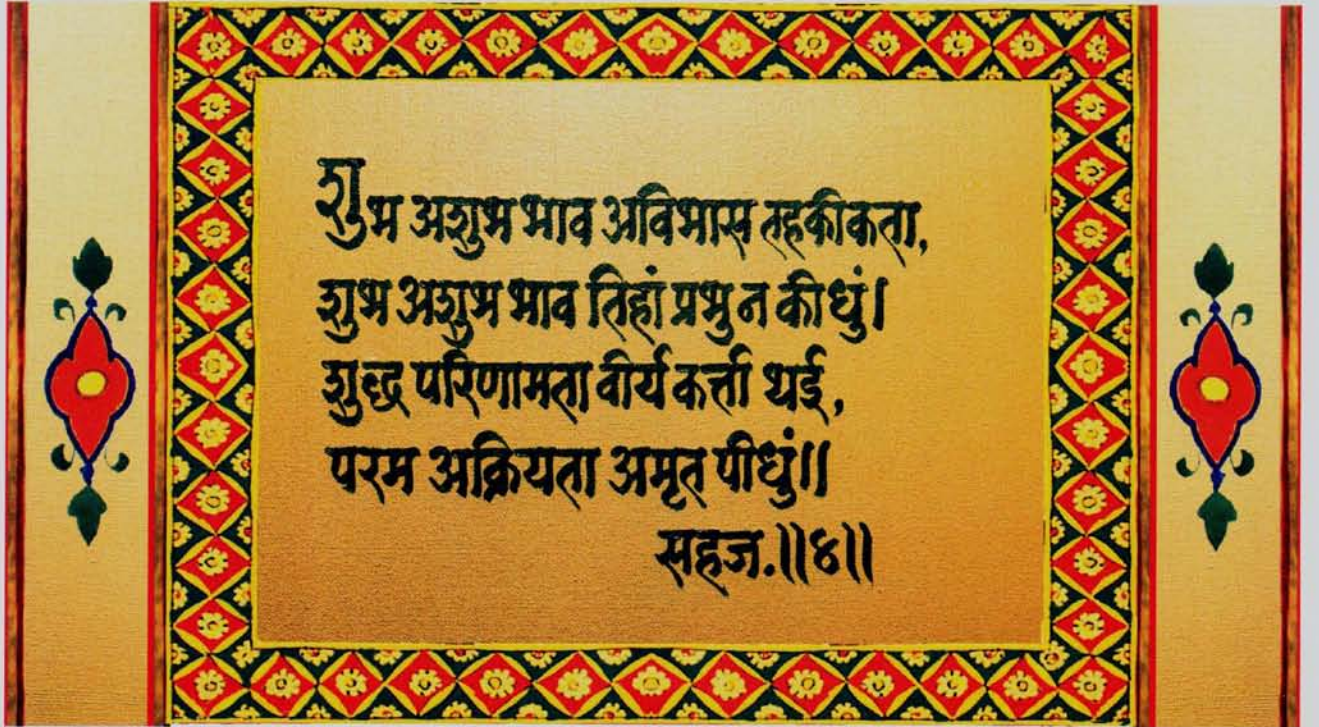 शुभ अशुभ भाव अविभास तहकीकता,
शुभ अशुभ भाव तिहां प्रभु न कीधुं।
शुद्ध परिणामता वीर्य कर्त्ता थई,
परम अक्रियता अमृत पीधुं॥
सहज.॥४॥